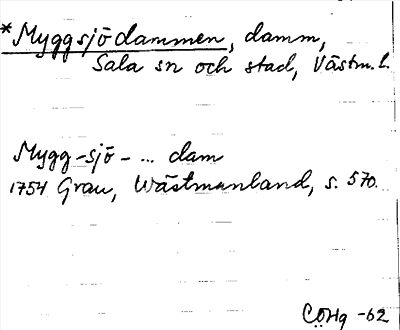 *Myggsjödammen, damm,
Sala sn och stad, Västm. l.
Mygg-sjö- ... dam
1754 Grau, Wästmanland, s. 570.
CÖHg -62